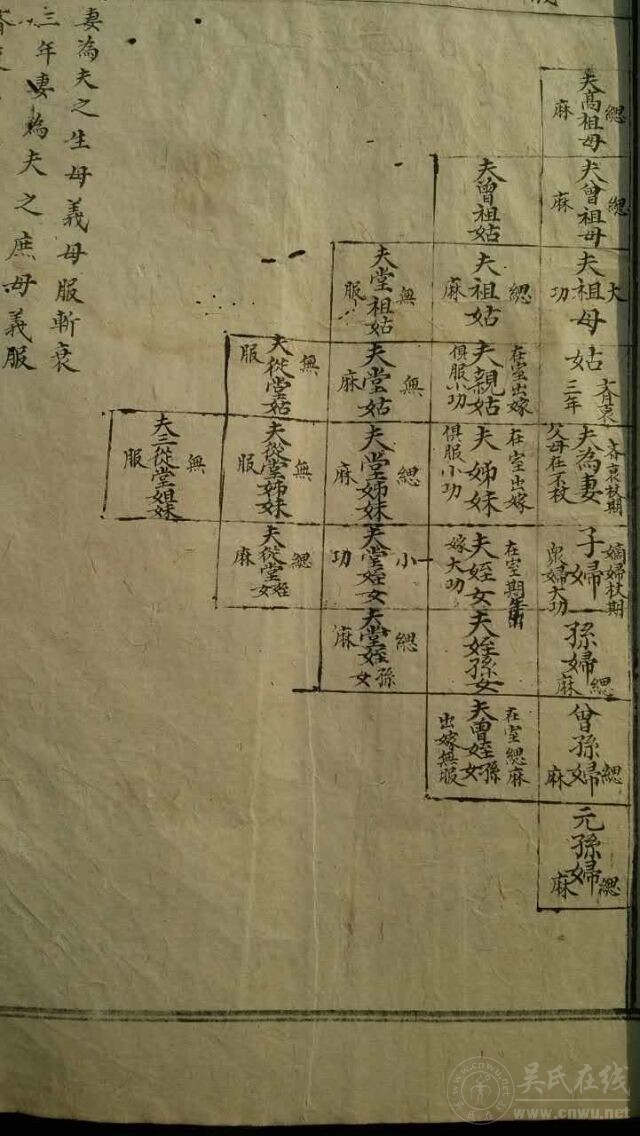 夫高祖母
緦麻
夫曾祖母
緦麻
夫祖母
大功
姑
齊衰三年
夫為妻
齊衰杖期
父母在不杖
子婦
嫡婦杖期
眾婦大功
孫婦
緦麻
曾孫婦
緦麻
元孫婦
緦麻
夫曾祖姑
夫祖姑
緦麻
夫親姑
在室出嫁
俱服小功
夫姊妹
在室出嫁
俱服小功
夫姪女
在室期年
嫁大功
夫姪孫女
夫曾姪孫女
在室緦麻
出嫁無服
夫堂祖姑
無服
夫堂姑
無麻
夫堂姊妹
緦麻
夫堂姪女
小功
夫堂姪孫女
緦麻
夫從堂姑
無服
夫從堂姊妹
無服
夫從堂姪女
緦麻
夫三從堂姐妹
無服
妻為夫之生母義母服斬衰
三年妻為夫之庶母義服
吴氏在线
www.cnwu.net